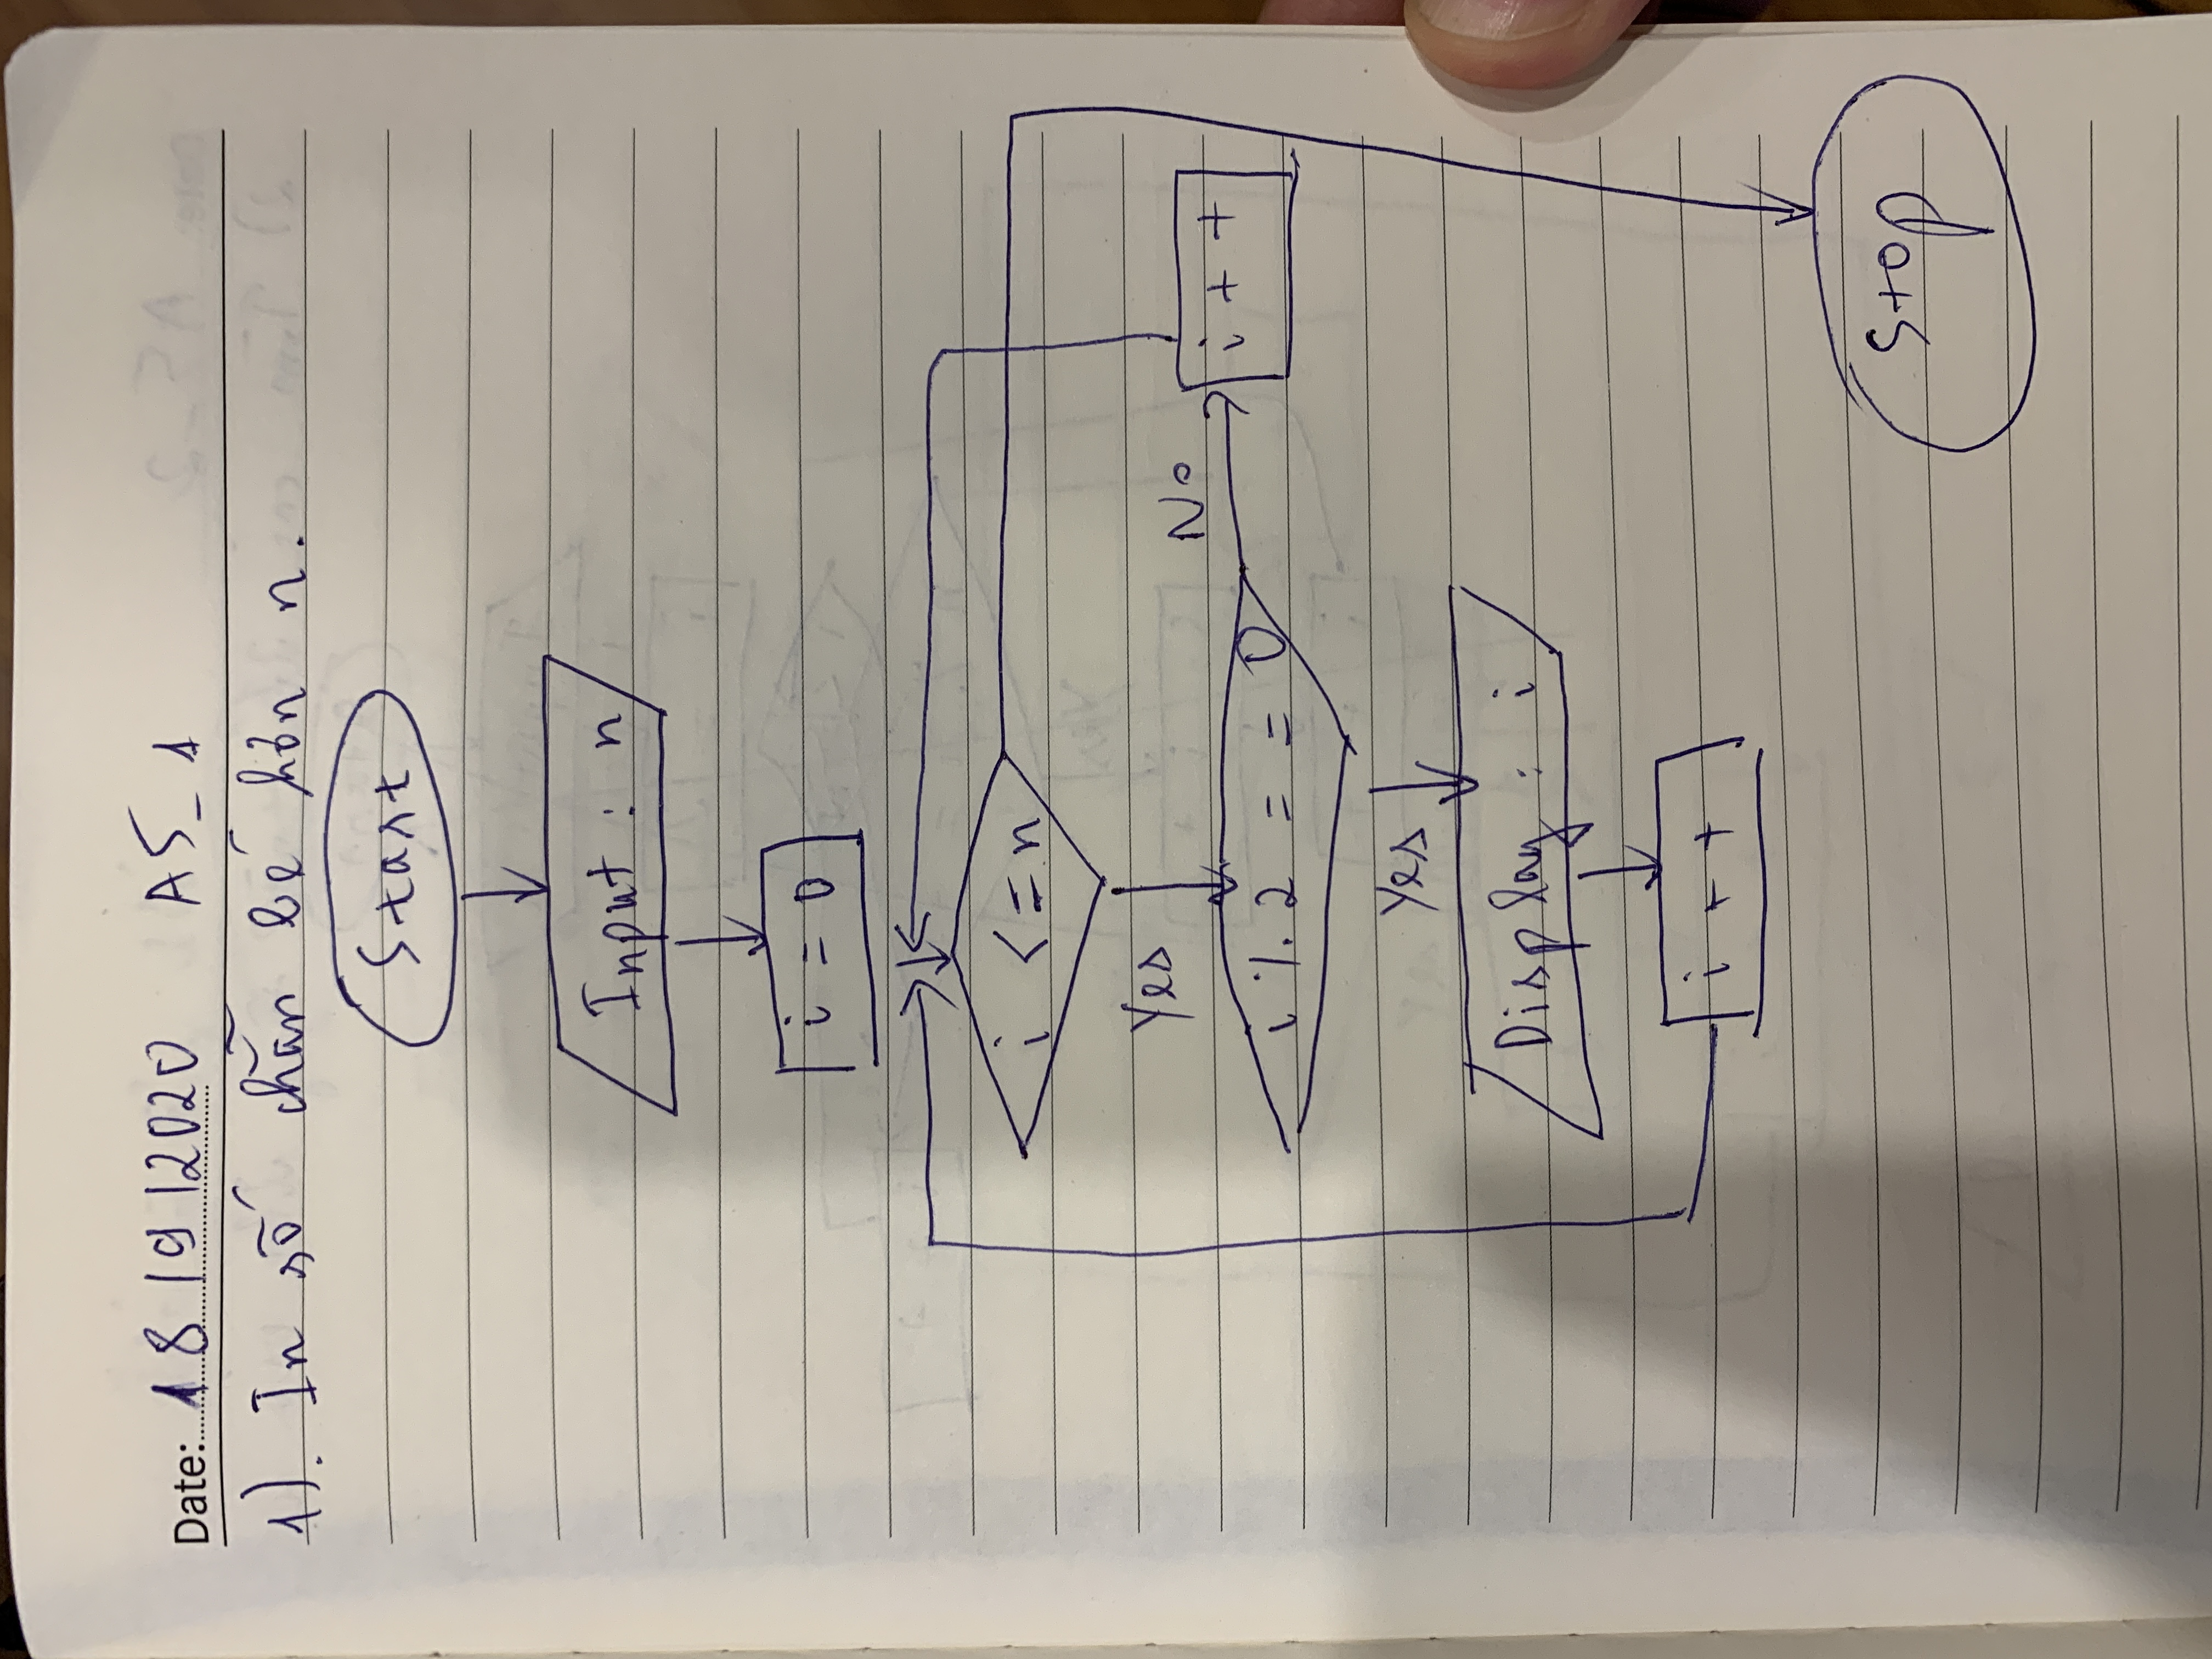 Date: 18/9/2020 AS_1
1). In số chẵn bé hơn n.
Start
Input : n
i = 0
i <= n
Yes
No
i % 2 = = 0
i + +
Yes
Display : i
i + +
Stop